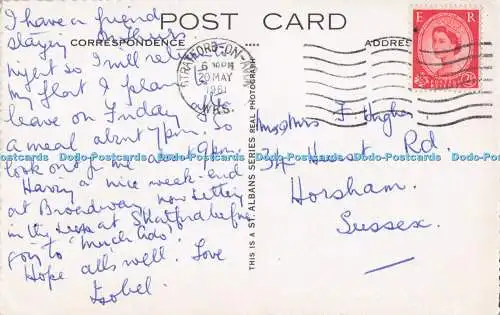 POST CARD
CORRESPONDENCE
ADDRES
E R
STRATFORD-ON-AVON
6 PM
20 MAY
1961
WKS.
I have a friend
staying
night so I will
my flat I plan
leave on Friday
a meal about 7pm. So
look out for me about 9pm.
Having a nice week-end
at Broadway now sitting
in the at Stratford before
going to "Much Ado".
Hope alls well. Love
Isobel.
THIS IS A ST. ALBANS SERIES REAL PHOTOGRAPH
Mr & Mrs F Hughes
34 Hurst Rd.
Horsham.
Sussex.
Dodo-Postcards Dodo-Postcards Dodo-Postcards Dodo-Postcards Dodo-Postcards